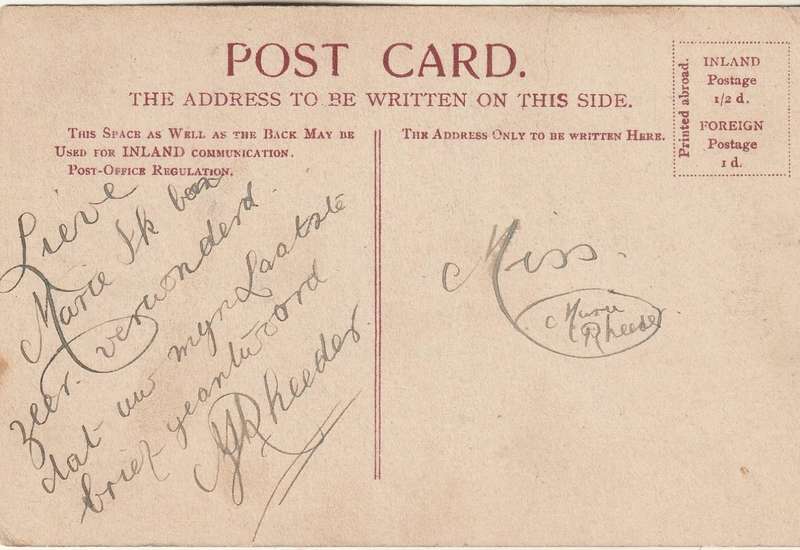 POST CARD.
THE ADDRESS TO BE WRITTEN ON THIS SIDE.
THIS SPACE AS WELL AS THE BACK MAY BE
USED FOR INLAND COMMUNICATION.
POST-OFFICE REGULATION.
THE ADDRESS ONLY TO BE WRITTEN HERE.
Printed abroad.
INLAND
Postage
1/2 d.
FOREIGN
Postage
1 d.
Lieve
Marie Ik ben
zeer verwonderd
dat uw myn Laatste
brief geantwoord
Rheeder
Miss.
Marie
Rheeder